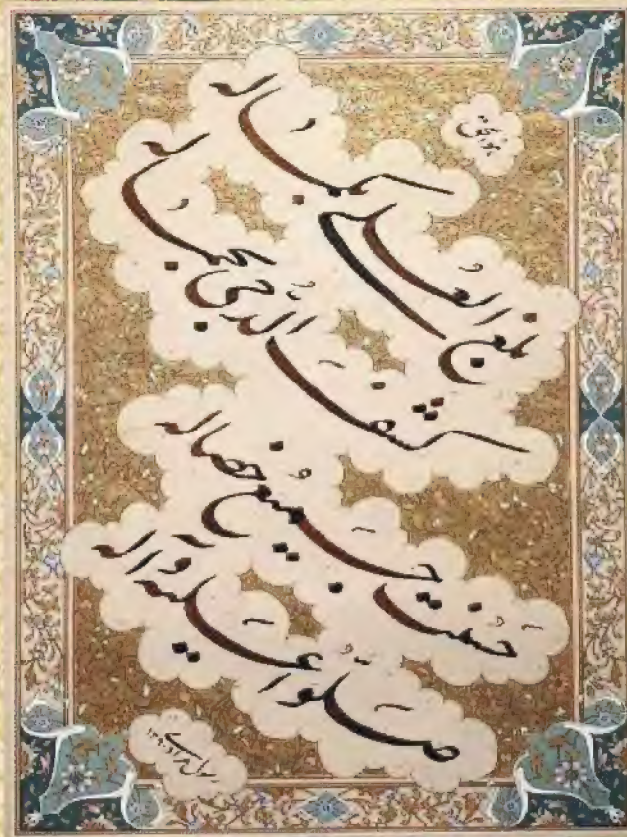 هو الحق
بلغ العلى بکماله
کشف الدجی بجماله
حسنت جمیع خصاله
صلوا علیه وآله